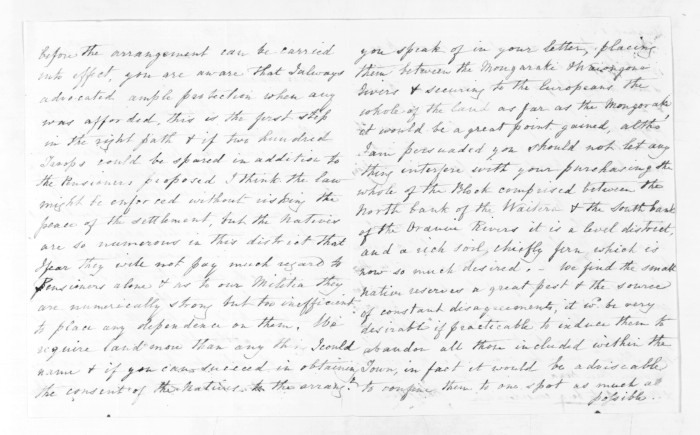 before the arrangement can be carried
into effect, you are aware that I always
advocated ample protection when any
was afforded, this is the first step
in the right path & if two hundred
Troops could be spared in addition to
the Pensioners proposed I think the law
might be enforced without risking the
peace of the settlement, but the Natives
are so numerous in this district that
I fear they will not pay much regard to
Pensioners alone & as to our Militia they
are numerically strong but too inefficient
to place any dependence on them. We
require land more than any thing I could
name & if you can succeed in obtaining
the consent of the Natives to the arrangt.
you speak of in your letter, placing
them between the Mangaraki &
Rivers & securing to the Europeans the
whole of the land as far as the Mangoraki
it would be a great point gained, altho'
I am persuaded you should not let any
thing interfere with your purchasing the
whole of the Block comprised between the
North bank of the Waitera & the South bank
of the Onaero Rivers it is a level district
and a rich soil, chiefly fern which is
now so much desired. - We find the small
native reserves a great pest & the source
of constant disagreements, it wd. be very
desirable if practicable to induce them to
abandon all those included within the
Town, in fact it would be adviseable
to confine them to one spot as much as
possible.